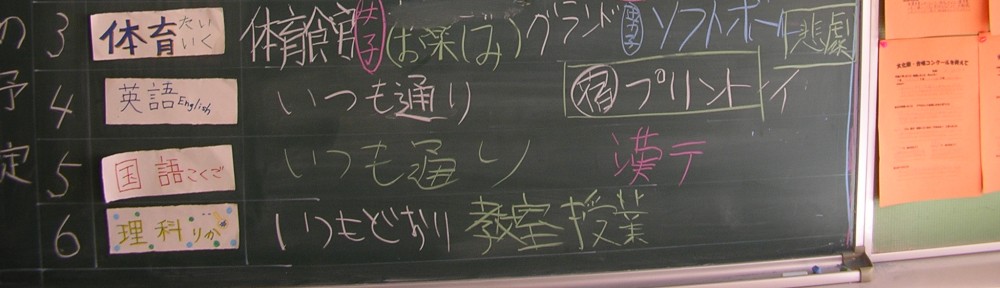 の 3 体育 たいいく 体育館 女子 (お楽しみ) グランド 男子 ソフトボール 悲劇
予 4 英語 English いつも通り 宿 プリント
定 5 国語 こくご いつも通り 漢テ
6 理科 りか いつもどおり 教室授業